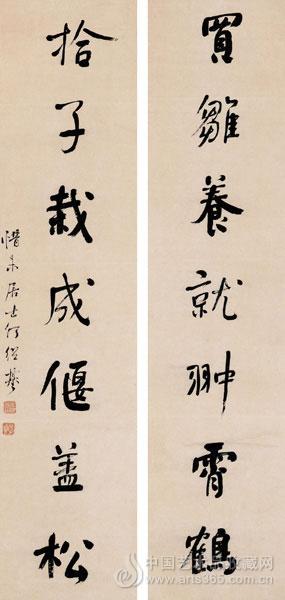 買雛養就翀霄鶴
拾子栽成偃蓋松
惜居士何維樸
中国艺术品收藏网
www.arts365.com.cn